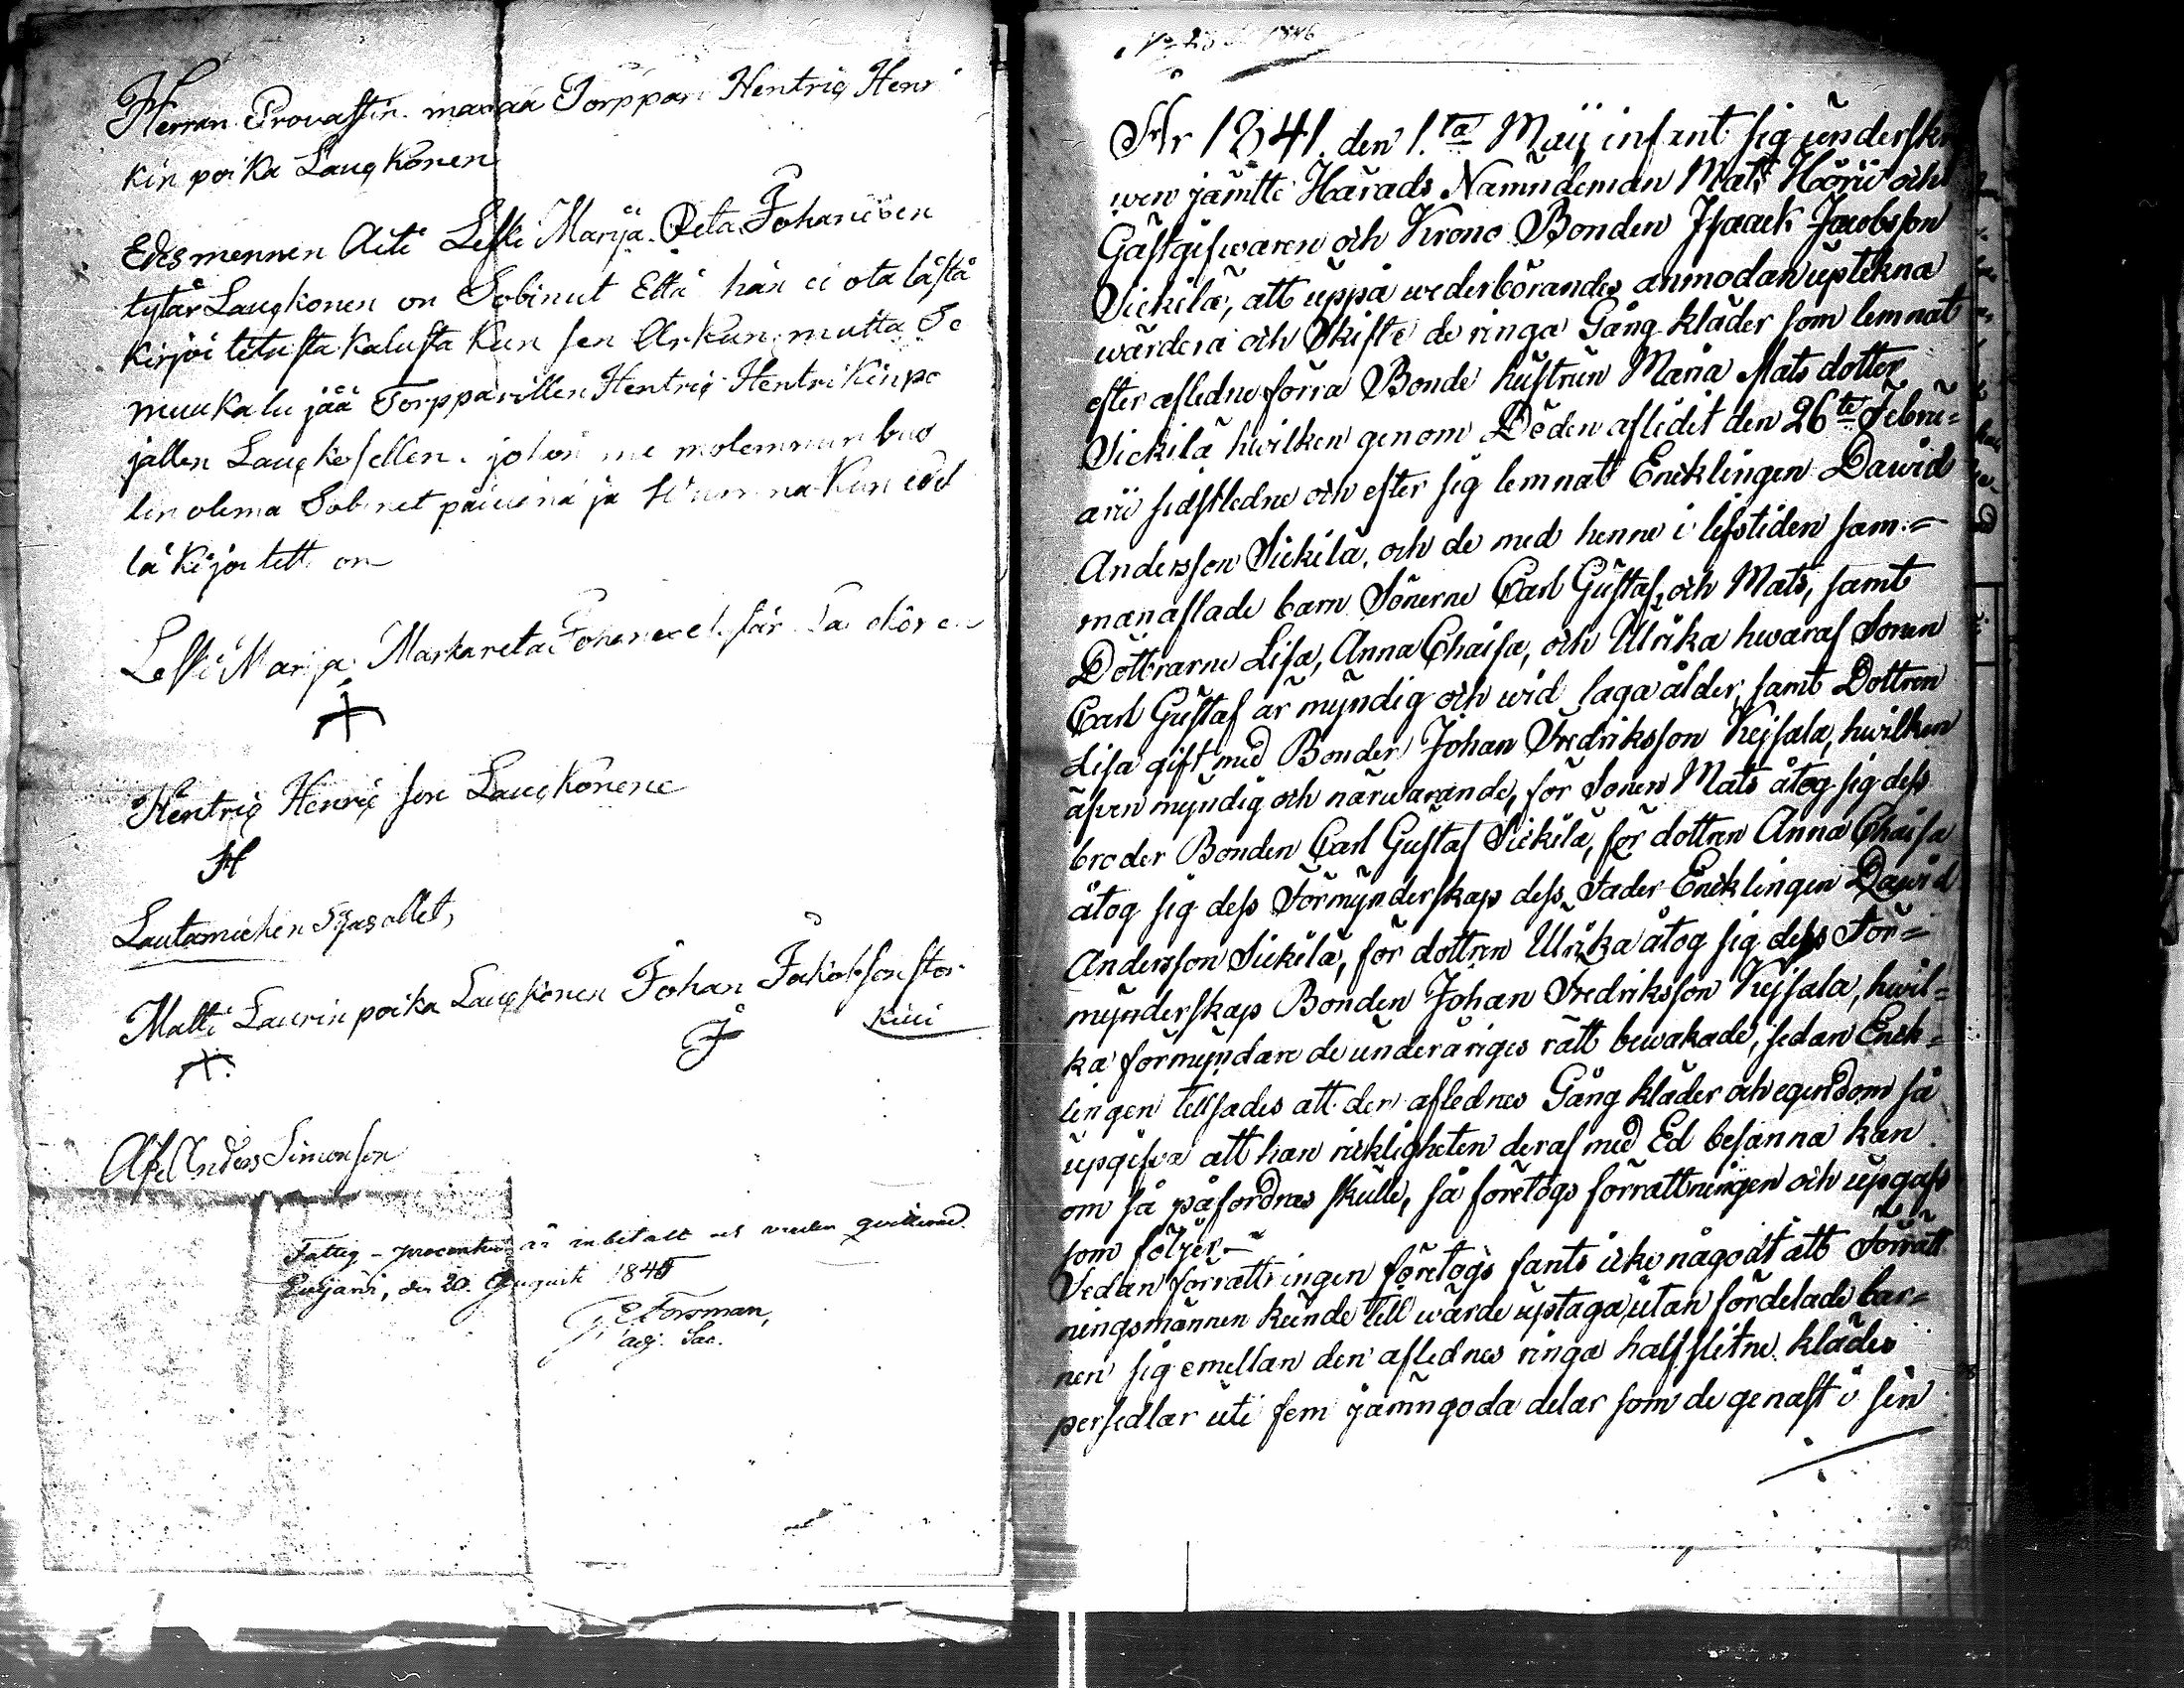 Herran Provastin maraa Torppari Hentriq Henri
kin poika Lauqkonen
Edesmennen Aiti Leski Marija Reta Johanesen
tytär Lauqkonen on Sobinut Että hän ei ota tästä
kirjoi tetusta kalusta kun sen Arkun, mutta Se
muu kalu jää Torpparillen Hentriq Hentrikin po
jallen Lauqkosellen, johon me molemmin buo
lin olema Sobinet päivänä ja Wunna kun edel
lä kirjoitett on
Leski Marija Markareta
Hentriq Henriq son Lauqkonene
H
Lautamiehen Syasollet,
Matti Laurin poika Lauqkonen Johan Jakobson stor
kiui
J
Axel Anders Simonson
Fattig-procenten är inbetalt och varder qvitterad.
Eurjärvi, den 20. Augusti 1840
E Forsman,
adj. Sac.
1846
År 1841. den 1.ta Maij infant sig underskre
wen jämtte Härads Nämndeman Matts Hörü och
Gästgifwaren och Krono Bonden Isaack Jacobsson
Sickilä, att uppå wederbörandes anmodan uptekna
wärdera och Skifte de ringa Gång kläder som lemnat
efter afledne förra Bonde hustrun Maria Mats dotter
Sickilä hwilken genom Döden afledit den 26te Febru=
arii sidstledne och efter sig lemnat Encklingen Dawid
Andersson Sickilä, och de med henne i lifstiden sam=
manaflade barn Sönerne Carl Gustaf, och Mats, samt
Döttrarne Lisa, Anna Chaisa, och Ulrika hwaraf Sonen
Carl Gustaf är myndig och wid laga ålder, samt Dottren
Lisa gift med Bonden Johan Fredriksson Keisala, hwilken
äfven myndig och närwarande, för Sonen Mats åtog sig dess
broder Bonden Carl Gustaf Sickilä, för dottren Anna Chaisa
åtog sig dess Förmynderskap dess Fader Encklingen Dawid
Andersson Sickilä, för dottren Ulrika åtog sig dess För=
mynderskap Bonden Johan Fredriksson Keisala, hwil=
ka förmyndare de underåriges rätt bewakade, sedan Enck=
lingen tillsades att den aflednes Gång kläder och egendom så
upgifva att han ricktigheten deraf med Ed besanna kan
om så påfordras skulle, så företogs förrättningen och upgafs
som följer.
Sedan förrättningen företogs fants icke någodt att Förrätt
ningsmännen kunde till wärde uptaga, utan fördelade bar=
nen sig emellan den aflednes ringa halfslitne kläder
persedlar uti fem jämngoda delar som de genast i sin